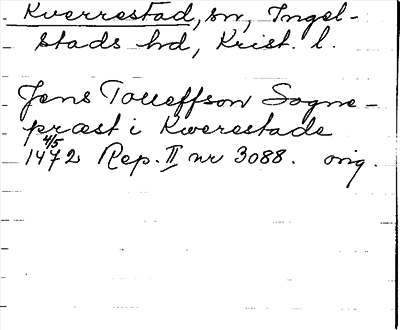 Kverrestad, sn, Ingel-
stads hd, Krist. l.
Jens Toueffson Sogne-
præst i Kwerestade
4/5
1472 Rep. II nr 3088. orig.